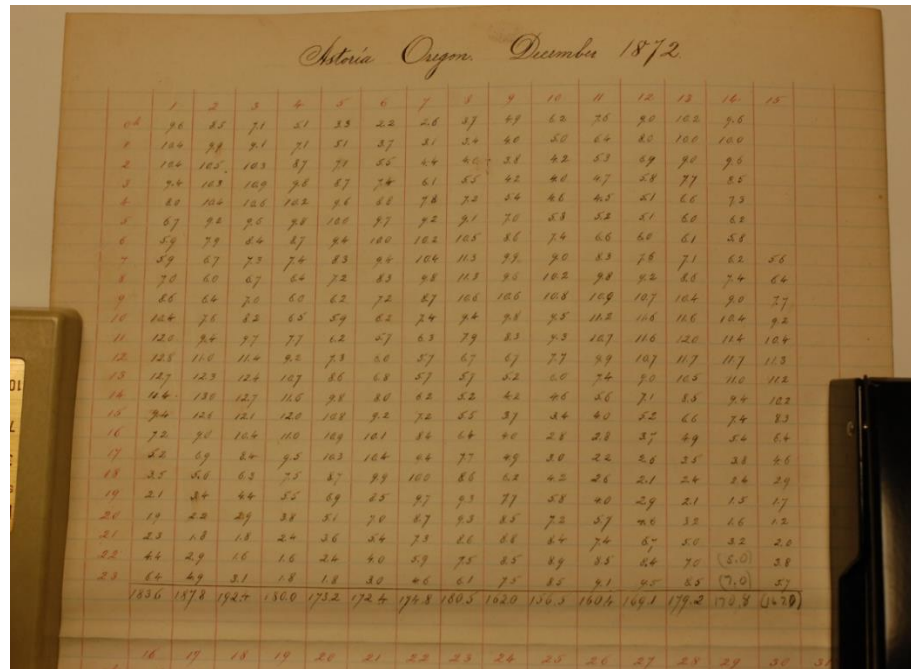 Astoria Oregon. December 1872.
1 2 3 4 5 6 7 8 9 10 11 12 13 14 15
0h 9.6 8.5 7.1 5.1 3.3 2.2 2.6 3.7 4.9 6.2 7.6 9.0 10.2 9.6
1 10.4 9.9 9.1 7.1 5.1 3.7 3.1 3.4 4.0 5.0 6.4 8.0 10.0 10.0
2 10.4 10.5 10.3 8.7 7.3 5.5 4.4 4.0 3.8 4.2 5.3 6.9 9.0 9.6
3 9.4 10.8 10.9 9.8 8.7 7.4 6.1 5.5 4.2 4.0 4.7 5.8 7.7 8.5
4 8.0 10.4 10.6 10.2 9.6 8.8 7.8 7.2 5.4 4.6 4.5 5.1 6.6 7.3
5 6.7 9.2 9.6 9.8 10.0 9.7 9.2 9.1 7.0 5.8 5.2 5.1 6.0 6.2
6 5.9 7.9 8.4 8.7 9.4 10.0 10.2 10.5 8.6 7.4 6.6 6.0 6.1 5.8
7 5.9 6.7 7.3 7.4 8.3 9.4 10.4 11.3 9.9 9.0 8.3 7.6 7.1 6.2 5.6
8 7.0 6.0 6.7 6.4 7.2 8.3 9.8 11.2 9.6 10.2 9.8 9.2 8.6 7.4 6.4
9 8.6 6.4 7.0 6.0 6.2 7.2 8.7 10.6 10.6 10.8 10.9 10.7 10.4 9.0 7.7
10 10.4 7.6 8.2 6.5 5.9 6.2 7.4 9.4 9.8 9.5 11.2 11.6 11.6 10.4 9.2
11 12.0 9.4 9.7 7.7 6.2 5.7 6.3 7.9 8.3 9.3 10.7 11.6 12.0 11.4 10.4
12 12.8 11.0 11.4 9.2 7.3 6.0 5.7 6.7 6.7 7.7 9.9 10.7 11.7 11.7 11.3
13 12.7 12.3 12.4 10.7 8.6 6.8 5.7 5.7 5.2 6.0 7.4 9.0 10.5 11.0 11.2
14 11.4 13.0 12.7 11.6 9.8 8.0 6.2 5.2 4.2 4.6 5.6 7.1 8.5 9.4 10.2
15 9.4 12.1 12.0 10.8 9.2 7.2 5.5 3.7 3.4 4.0 5.2 6.6 7.4 8.3
16 7.2 9.0 10.4 11.0 10.9 10.1 8.4 6.4 4.0 2.8 2.8 3.7 4.9 5.4 6.4
17 5.2 6.9 8.4 9.5 10.3 10.4 9.4 7.7 4.9 3.0 2.2 2.6 3.5 3.8 4.6
18 3.5 5.0 6.3 7.5 8.7 9.9 10.0 8.6 6.2 4.2 2.6 2.1 2.4 2.4 2.9
19 2.1 3.4 4.4 5.5 6.9 8.5 9.7 9.3 7.7 5.8 4.0 2.9 2.1 1.5 1.7
20 1.9 2.2 2.9 3.8 5.1 7.0 8.7 9.3 8.5 7.2 5.7 4.6 3.3 1.6 1.2
21 2.3 1.8 1.8 2.4 3.6 5.4 7.3 8.6 8.8 8.4 7.4 5.0 3.2 2.0
22 4.4 2.9 1.6 1.6 2.4 4.0 5.9 7.5 8.5 8.9 8.5 8.4 7.0 (5.0) 3.8
23 6.4 4.9 3.1 1.8 1.8 3.0 4.6 6.1 7.5 8.5 9.1 9.5 8.5 (7.0) 5.7
183.6 187.8 192.4 180.0 173.2 172.4 174.8 180.5 162.0 156.5 160.4 169.1 179.2 170.8
16 17 18 19 20 21 22 23 24 25 26 27 28 29 30 31